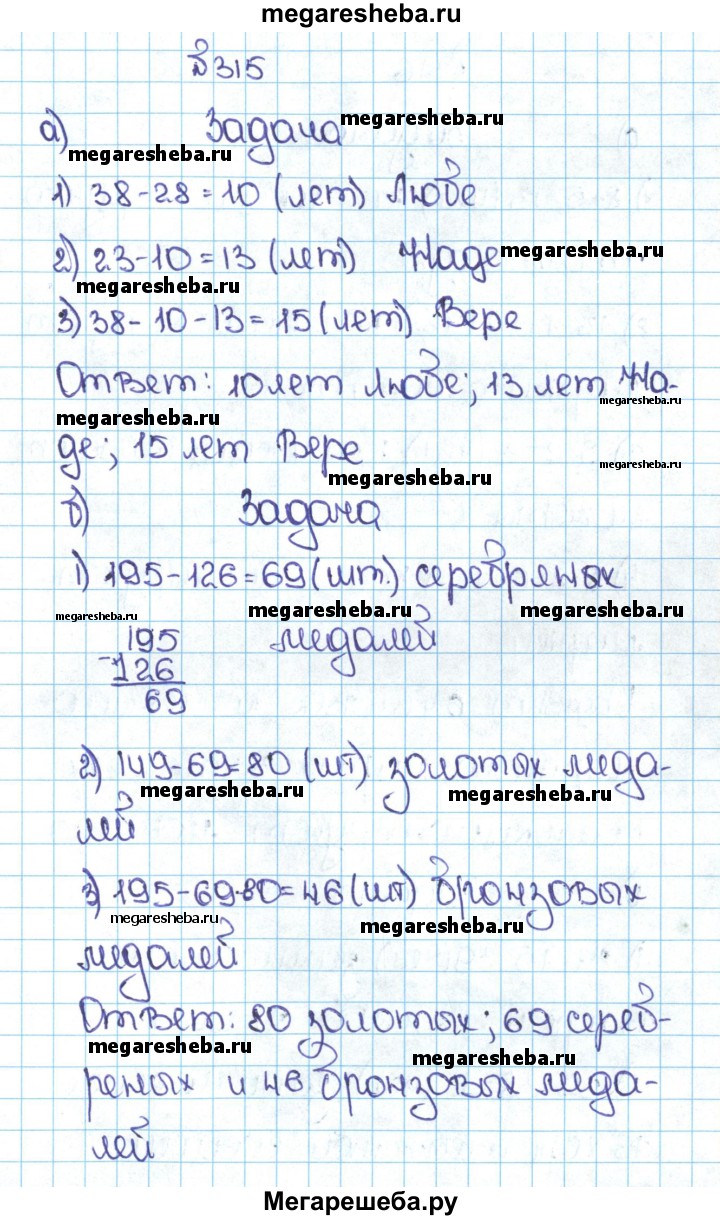 megaresheba.ru
№315
а) Задача megaresheba.ru
megaresheba.ru
1) 38-28=10 (лет) Любе
2) 23-10=13 (лет) Наде megaresheba.ru
megaresheba.ru
3) 38-10-13=15 (лет) Вере
Ответ: 10 лет Любе; 13 лет На-
megaresheba.ru
megaresheba.ru
де; 15 лет Вере
megaresheba.ru
megaresheba.ru
б) Задача
1) 195-126=69 (шт.) серебряных
megaresheba.ru megaresheba.ru megaresheba.ru
195 медалей
-126
69
2) 149-69=80 (шт) золотых меда-
megaresheba.ru megaresheba.ru
лей
3) 195-69-80=46 (шт) бронзовых
megaresheba.ru megaresheba.ru
медалей
Ответ: 80 золотых; 69 сереб-
megaresheba.ru megaresheba.ru
реных и 46 бронзовых меда-
лей
Мегарешеба.ру